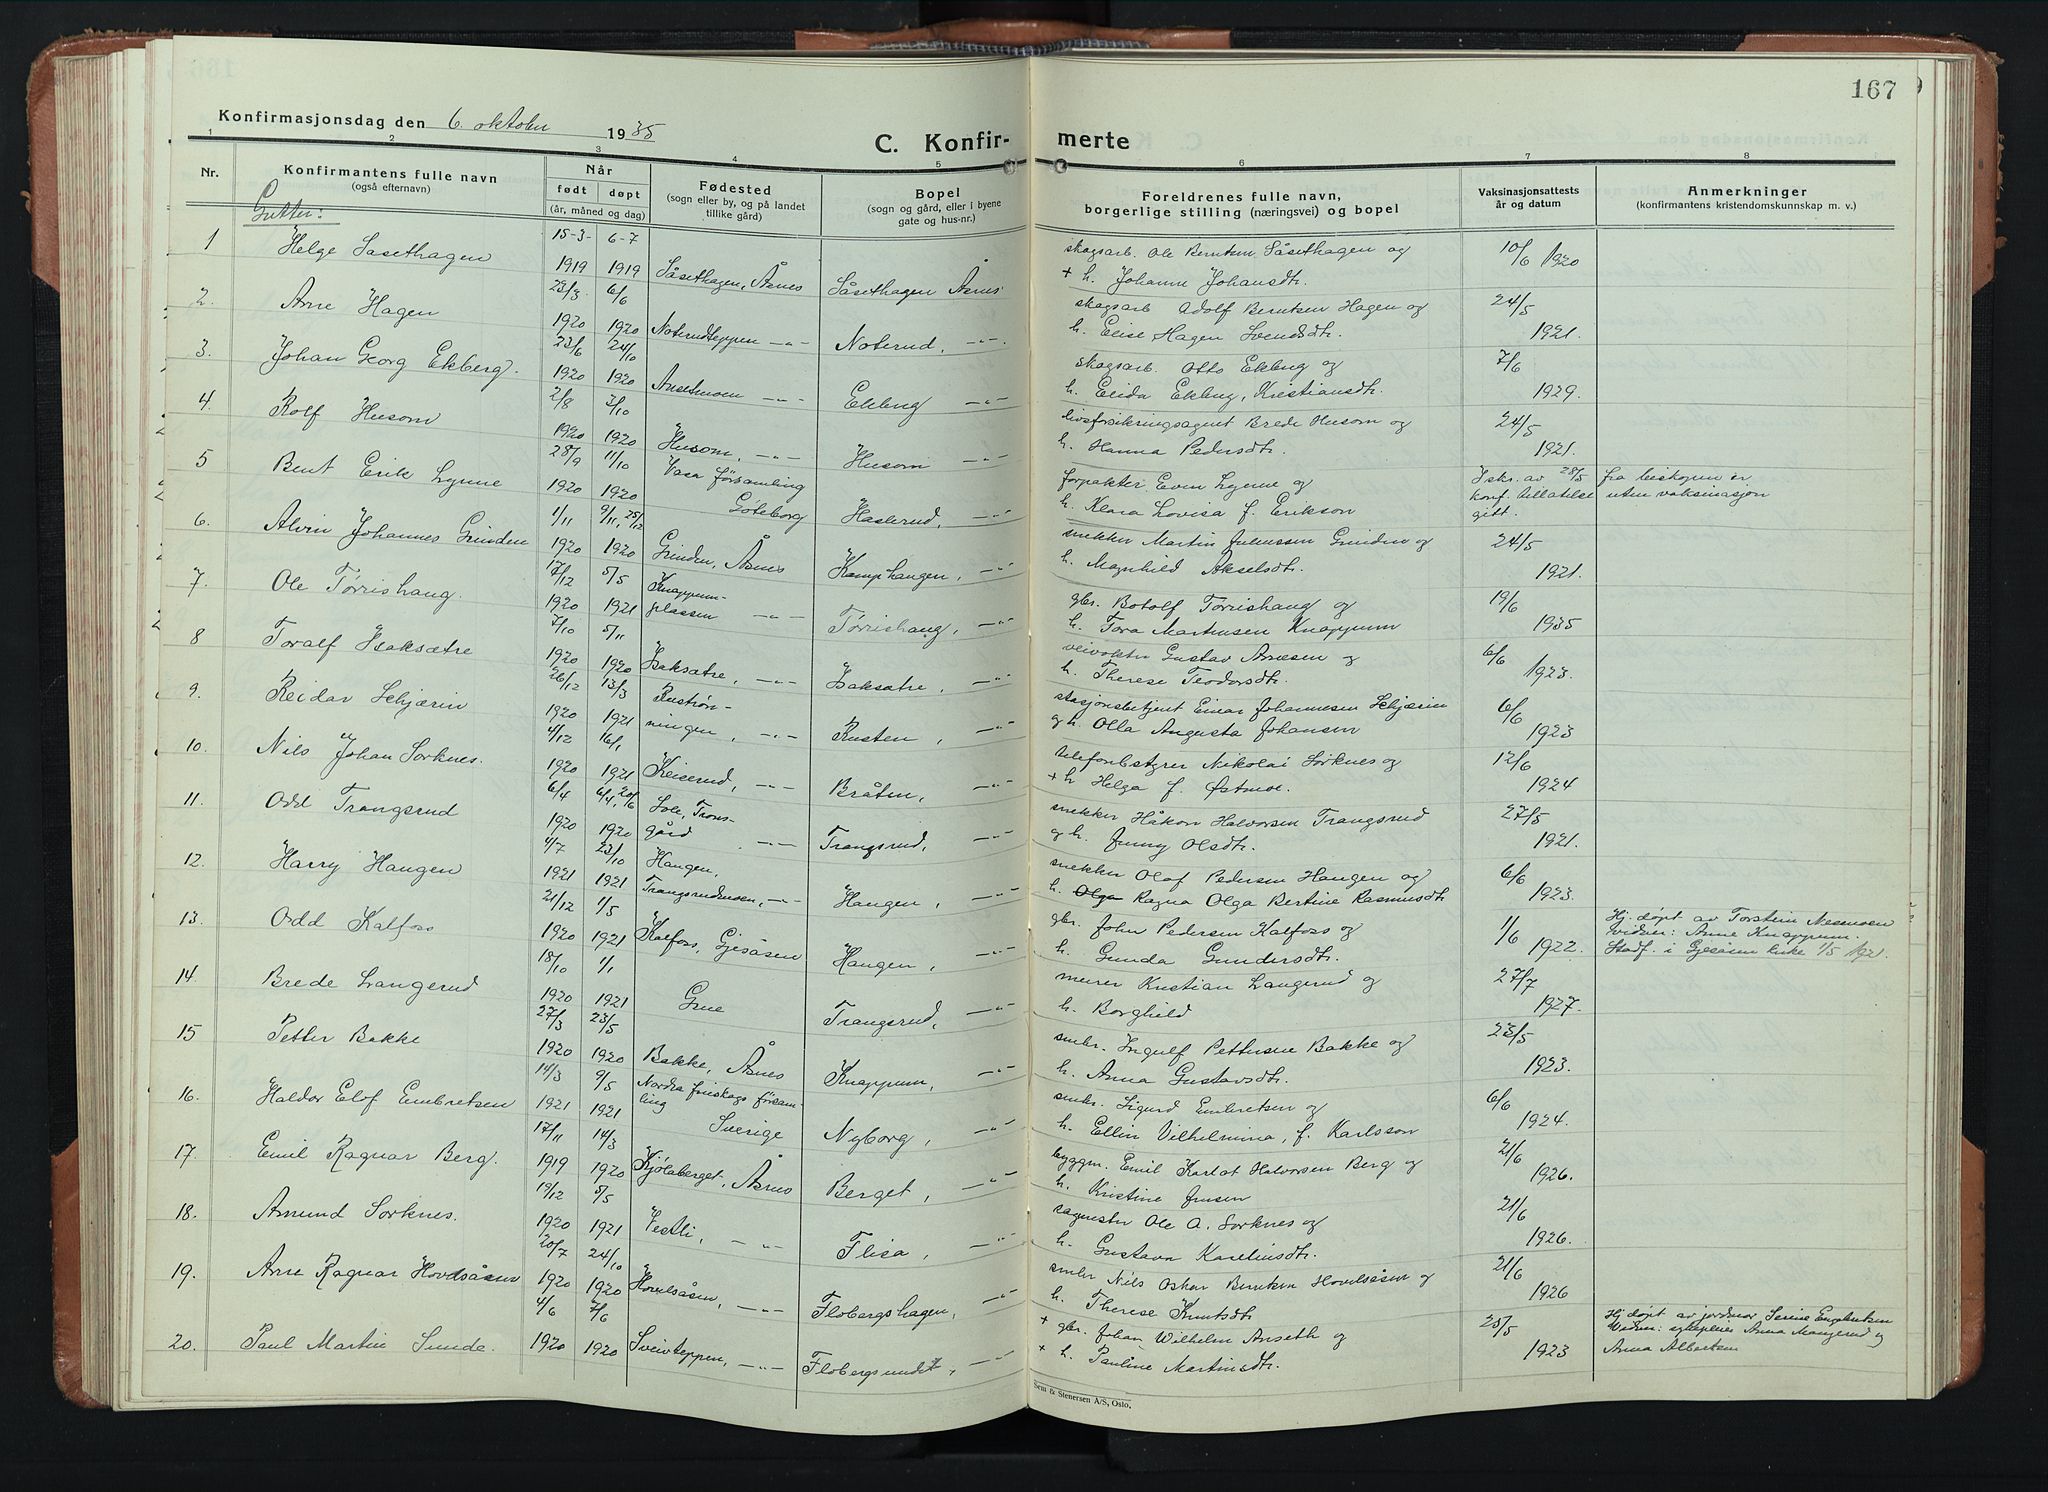 167
Konfirmasjonsdag den 6. oktober 1935
C. Konfir- merte
1 2 3 4 5 6 7 8
Nr.
Konfirmantens fulle navn
(også efternavn)
Når
født døpt
(år, måned og dag)
Fødested
(sogn eller by, og på landet
tillike gård)
Bopel
(sogn og gård, eller i byene
gate og hus-nr.)
Foreldrenes fulle navn,
borgerlige stilling (næringsvei) og bopel
Vaksinasjonsattests
år og datum
Anmerkninger
(konfirmantens kristendomskunnskap m. v.)
Gutter:
1 Helge Sasethagen 15-3- 1919 6-7 1919 Såsethagen, Åsnes Såsethagen Åsnes skogsarb. Ole Berntsen Såsethagen og + h. Johanne Johansdtr. 10/6 1920
2. Arne Hagen 23/3 1920 6/6 1920 Noterudteppen —"— Noterud, —"— skogsarb Adolf Berntsen Hagen og h. Elise Hagen Svendsdtr. 24/5 1921.
3. Johan Georg Ekberg. 23/6 1920 24/10 1920 Arsetmoen —"— Ekberg —"— skogsarb. Otto Ekberg og h. Erida Ekberg, Kristiansdtr. 7/6 1929.
4 Rolf Husom 2/8 1920 7/10 1920 Husom, —"— Husom —"— livsforsikringsagent Brede Husom og h. Hanna Pedersdtr. 24/5 1921.
5 Bent Erik Lynne 28/9 1920 11/10 1920 Vasa församling Göteborg Haslerud, —"— forpakter Even Lynne og h. Klara Lovisa f. Erikson I skr. av 28/5 fra biskopen er konf. tillatelse uten vaksinasjon gitt.
6. Alvin Johannes Grinden 1/11 1920 9/11, 25/12 1920 Grinden, Åsnes Kamphaugen, —"— snekker Martin Juliussen Grinden og h. Magnhild Akselsdtr. 24/5 1921.
7. Ole Tørrishaug. 17/12 1920 5/5 1921 Knappum- plassen —"— Tørrishaug, —"— gbr. Botolf Tørrishaug og h. Tora Martinsen Knappum 19/6 1935
8 Toralf Isaksætre 7/10 1920 5/11 1920 Isaksætre, —"— Isaksætre, —"— veivokter Gustav Arnesen og h. Therese Teodorsdtr. 6/6 1923.
9. Reidar Schjærin 26/12 1920 13/3 1921 Rustrøn- ningen, —"— Rusten, —"— stasjonsbetjent Einar Johannesen Schjærin og h. Olla Augusta Johansen 6/6 1923
10. Nils Johan Sorknes. 4/12 1920 16/1 1921 Keiserud, —"— Bråten, —"— telefonbestyrer Nikolai Sorknes og + h Helga f. Østmoe. 12/6 1924
11. Odd Trangsrud 6/4 1920 6/4, 20/6 1920 Sole, Trons- gård —"— Trangsrud, —"— snekker Håkon Halvorsen Trangsrud og h. Jenny Olsdtr. 27/5 1921.
12. Harry Haugen 4/7 1921 23/10 1921 Haugen, Trangsrudmoen, —"— Haugen, —"— snekker Olaf Pedersen Haugen og h. Olga Ragna Olga Bertine Rasmusdtr 6/6 1923.
13. Odd Kalfoss 21/12 1920 1/5 1921 Kalfoss, Gjesåsen Haugen, —"— gbr. John Pedersen Kalfoss og h. Gunda Gundersdtr. 1/6 1922. Hj. døpt av Torstein Nesmoen Vidner: Anne Knappum. Stadf. i Gjesåsen kirke 1/5 1921.
14. Brede Langerud 18/10 1920 1/1 1921 Grue Trangsrud, —"— murer Kristian Langerud og h. Borghild 27/7 1927.
15 Petter Bakke 27/3 1920 23/5 1920 Bakke, Åsnes Knappum, —"— smbr. Ingulf Pettersen Bakke og h. Anna Gustavsdtr. 23/5 1923.
16. Haldor Elof Embretsen 14/3 1921 9/5 1921 Nordra finskogs försam- ling Sverige Nyborg, —"— smbr. Sigurd Embretsen og h. Ellin Vilhelmina, f. Karlsson 6/6 1924.
17. Emil Ragnar Berg. 17/11 1919 14/3 1920 Kjølaberget, Åsnes Berget, —"— byggm. Emil Karlot Halvorsen Berg og h. Kristine Jensen 21/6 1926.
18. Amund Sorknes. 19/12 1920 5/5 1921 Vestli, —"— Flisa, —"— sagmester Ole A. Sorknes og h. Gustava Karelinsdtr. 21/6 1926.
19. Arne Ragnar Hovdsåsen 20/7 1920 24/10 1920 Hovelsåsen, —"— Flobergshagen, —"— smbr Nils Oskar Berntsen Hovelsåsen og h. Therese Knutsdtr. 21/6 1926
20. Paul Martin Sunde. 4/6 1920 7/6 1920 Sveivteppen, —"— Flobergsundet, —"— + gbr. Johan Wilhelm Anseth og + h. Pauline Martinsdtr. 25/5 1923 Hj. døpt av jordmor Serine Engebretsen Vidner: sykepleier Anna Mangerud og Anna Albertsen
Sem & Stenersen A/S, Oslo.